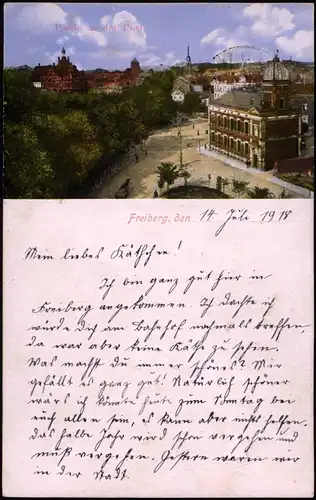 Partie an der Post
Freiberg, den 14. Juli 1918
Mein liebes Käthchen!
Ich bin ganz gut hier in
Freiberg angekommen. Ich dachte ich
würde dich am Bahnhof nochmals treffen,
da war aber keine Käthe zu sehen.
Was machst du immer schönes? Mir
gefällt es ganz gut! Natürlich schöner
wärs ich könnte heute zum Sonntag bei
euch allen sein, es kann aber nichts helfen,
das halbe Jahr wird schon vergehen und
muß vergehen. Gestern waren wir
in der Stadt.